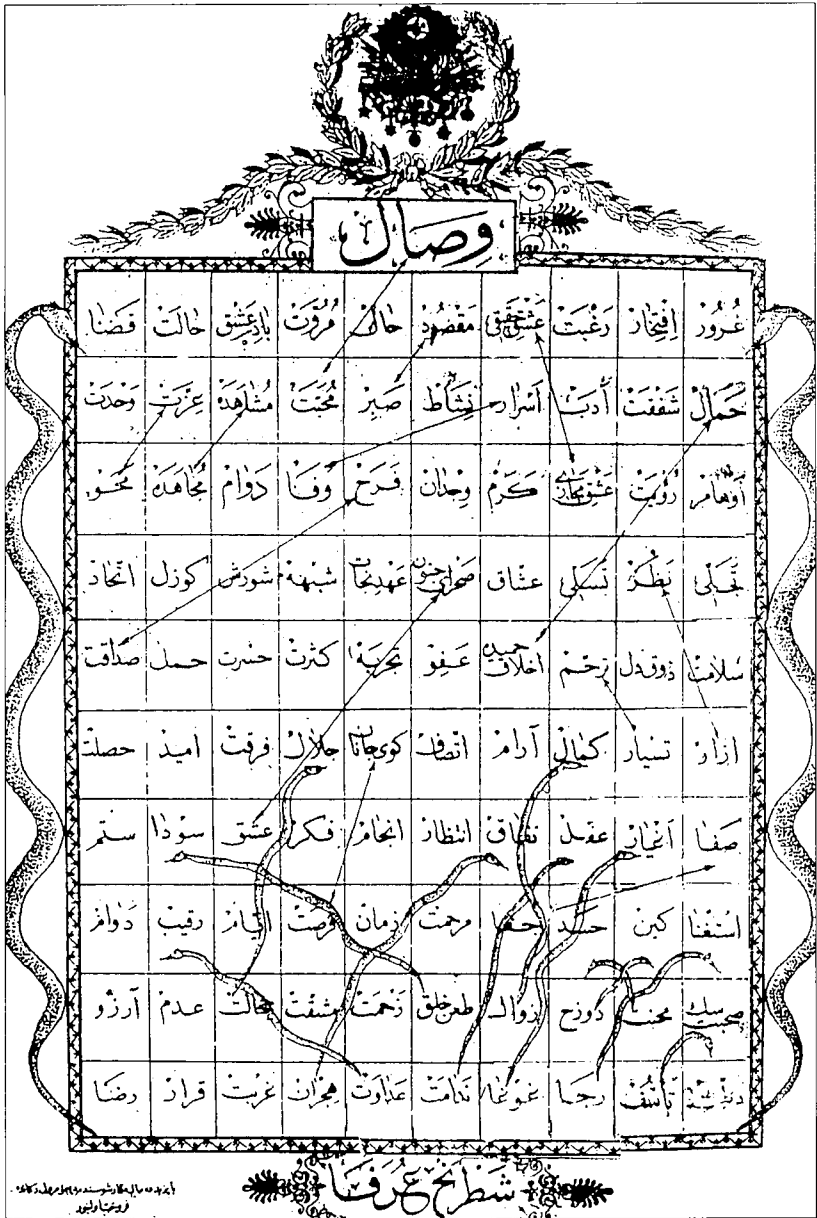 وصال
غُرُورْ اِفْتِخَارْ رَغْبَتْ عَشْقِ حَقِيقِی مَقْصُودْ حَالْ مُرُوَّتْ بَادِ عَشْق حَالَتْ قَضَا
جَمَالْ شَفْقَتْ أَدَبْ اَسْرَار نِشَاطْ صَبِرْ مُحَبَّتْ مُشَاهَدَه عِزَّتْ وَحْدَتْ
اَوْهَامْ رُؤْیَتْ عَشْقِ مَجَازِی كَرَمْ وِجْدَانْ فَرَحْ وَفَا دَوَامْ مُجَاهَدَه مَحْو
تَجَلِّی نَظَرْ تَسَلِّی عشاق صَحْرَایِ جنون شبهه شورش كوزل اتحاد
سَلَامَتْ ذوق دل تَرَحُّمْ اخلاق حمیده عَفْو تَجْرِبَه كثرت حسرت حمل صداقت
كَمَالْ آرام انصاف كوی جانان جلال فرقت امید
صَفَا اَغْیَارْ عقل نفاق انتظار انجام فكر عشق سودا ستم
استغنا كین حسد جفا مرحمت زمان فرصت رقیب دوام
محنت دوزخ زوال طعن خلق زحمت مشقت عدم آرزو
تأسف رجا غوغا ندامت عداوت هجران غربت قرار رضا
شطرنج عُرَفَا